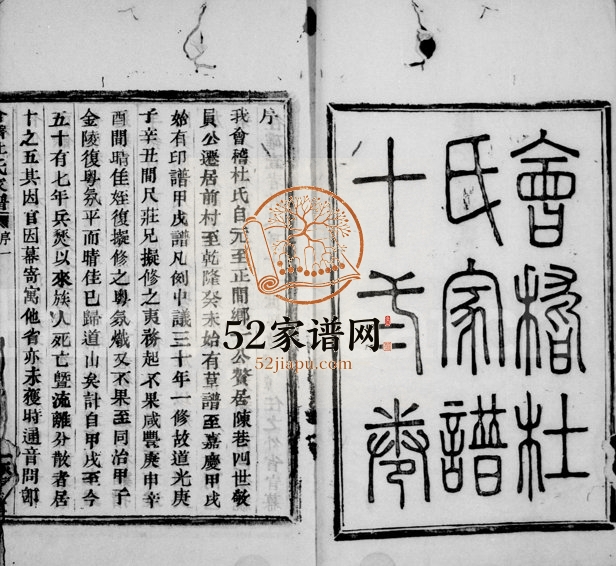 會稽杜
氏家譜
十
序
我會稽杜氏自元至正間鄉公贅居陳巷四世敎
員公遷居前村至乾隆癸未始有草譜至嘉慶甲戌
始有印譜甲戌譜凡例中議三十年一修故道光庚
子辛丑間尺莊兄擬修之夷務起不果咸豐庚申辛
酉間晴佳姪復擬修之粵氛熾又不果至同治甲子
金陵復粵氛平而晴佳已歸道山矣計自甲戌至今
五十有七年兵燹以來族人死亡暨流離分散者居
十之五其因官因幕寄寓他省亦未獲時通音問
會稽杜氏家譜 序一
52家谱网
52jiapu.com